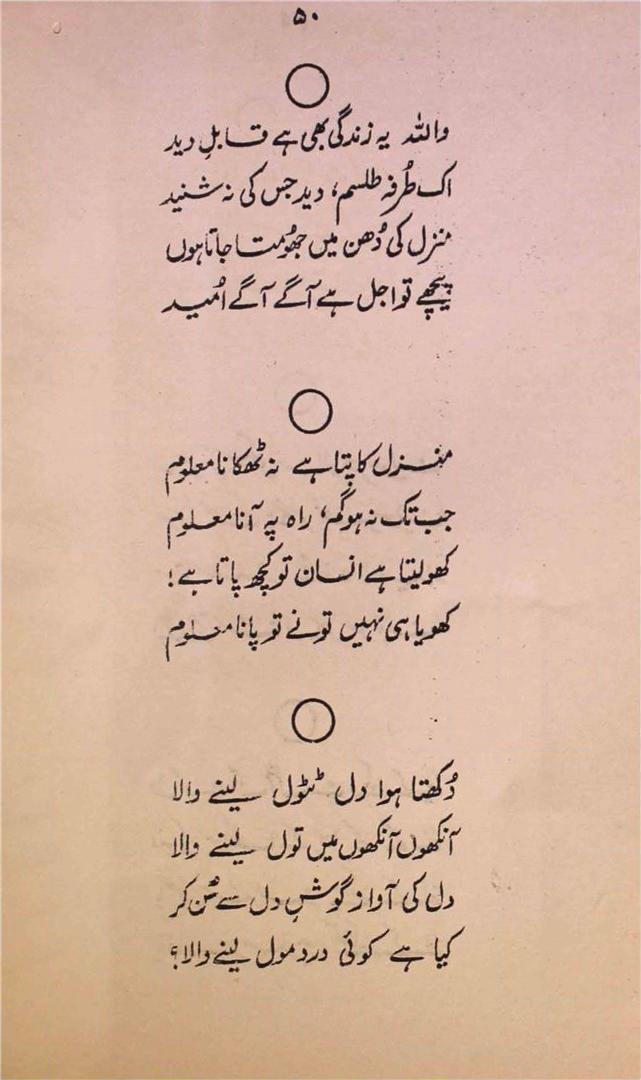 ۵۰
واللہ یہ زندگی بھی ہے قابلِ دید
اک طُرفہ طلسم، دید جس کی نہ شنید
منزل کی دُھن میں جھُومتا جاتا ہوں
پیچھے تو اجل ہے آگے آگے اُمید
منزل کا پتا ہے نہ ٹھکانا معلوم
جب تک نہ ہو گم، راہ پہ آنا معلوم
کھو لیتا ہے انسان تو کچھ پاتا ہے!
کھویا ہی نہیں تو نے تو پانا معلوم
دُکھتا ہوا دل ٹٹول لینے والا
آنکھوں آنکھوں میں تول لینے والا
دل کی آواز گوشِ دل سے سُن کر
کیا ہے کوئی درد مول لینے والا؟